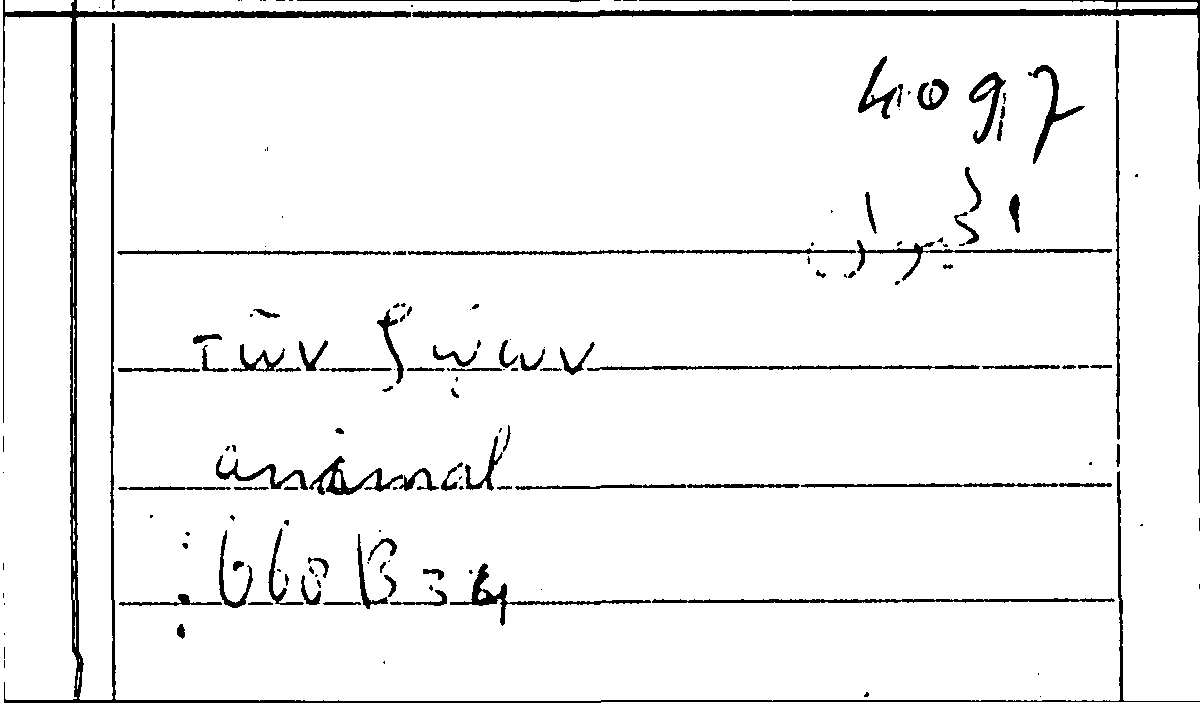 4097
الحيوان
τῶν ζῴων
animal
668 B 34